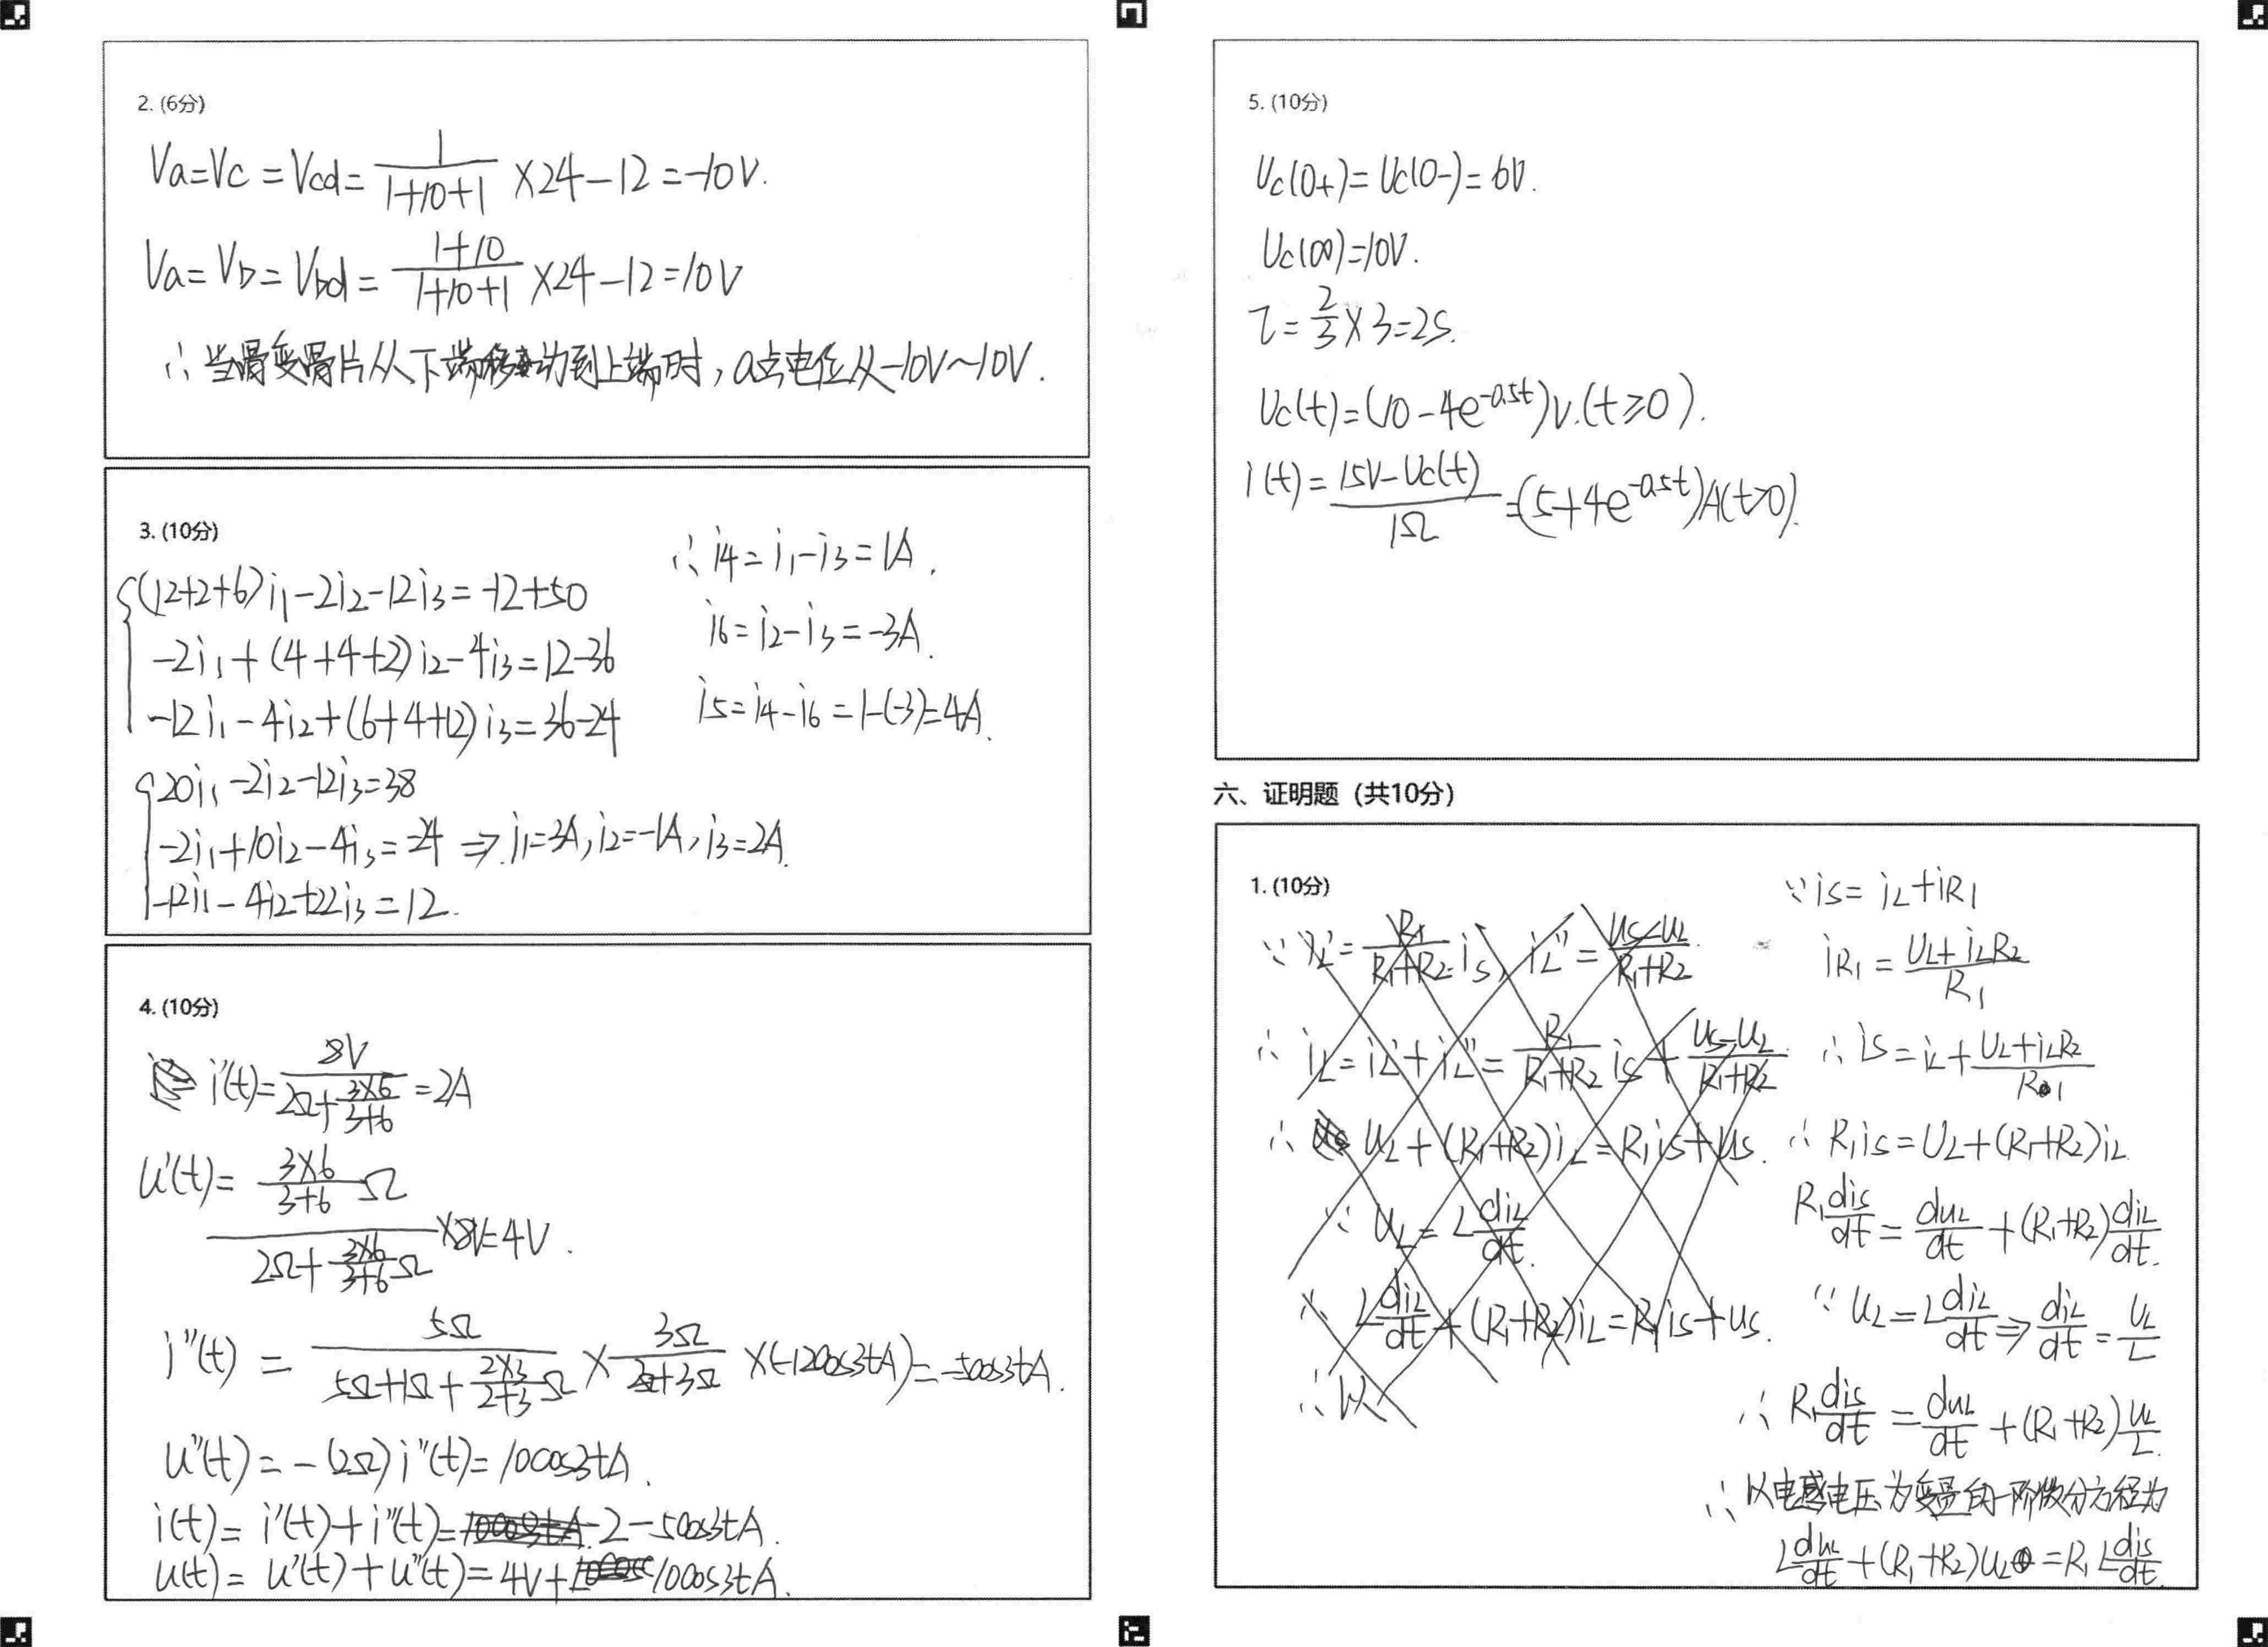 2. (6分)
Va=Vc=Vcd=1/(1+10+1)×24-12=-10V.
Va=Vb=Vbd=(1+10)/(1+10+1)×24-12=10V
∴当滑变滑片从下端移动到上端时,a点电位从-10V~10V.
3. (10分)
(12+2+6)i1-2i2-12i3=-12+50
-2i1+(4+4+2)i2-4i3=12-36
-12i1-4i2+(6+4+12)i3=36-24
20i1-2i2-12i3=38
-2i1+10i2-4i3=-24 ⇒ i1=3A,i2=-1A,i3=2A.
-12i1-4i2+22i3=12.
∴i4=i1-i3=1A.
i6=i2-i3=-3A.
i5=i4-i6=1-(-3)=4A.
4. (10分)
i'(t)=8V/(2Ω+(3×6)/(3+6))=2A
u'(t)=((3×6)/(3+6)Ω)/(2Ω+(3×6)/(3+6)Ω)×8V=4V.
i''(t)=5Ω/(5Ω+1Ω+(2×3)/(2+3)Ω)×3Ω/(2Ω+3Ω)×(-12cos3tA)=-5cos3tA.
u''(t)=-(2Ω)i''(t)=10cos3tA.
i(t)=i'(t)+i''(t)=2-5cos3tA.
u(t)=u'(t)+u''(t)=4V+10cos3tA.
5. (10分)
Uc(0+)=Uc(0-)=6V.
Uc(∞)=10V.
τ=2/3×3=2S.
Uc(t)=(10-4e^-0.5t)V.(t≥0).
i(t)=(15V-Uc(t))/1Ω=(5+4e^-0.5t)A(t>0).
六、证明题(共10分)
1. (10分)
∵iL'=R1/(R1+R2)is, iL''=(Us-UL)/(R1+R2)
∴iL=iL'+iL''=R1/(R1+R2)is+(Us-UL)/(R1+R2)
∴UL+(R1+R2)iL=R1is+Us.
∵UL=L diL/dt.
∴L diL/dt+(R1+R2)iL=R1is+Us.
∴以
∵is=iL+iR1
iR1=(UL+iLR2)/R1
∴is=iL+(UL+iLR2)/R1
∴R1is=UL+(R1+R2)iL
R1 dis/dt=duL/dt+(R1+R2)diL/dt.
∵UL=L diL/dt⇒diL/dt=UL/L
∴R1 dis/dt=duL/dt+(R1+R2)UL/L.
∴以电感电压为变量的一阶微分方程为
L duL/dt+(R1+R2)UL=R1L dis/dt.